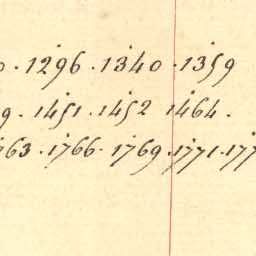 · 1296 · 1340 · 1359
1451 · 1452 1464 ·
· 1766 · 1769 · 1771 ·